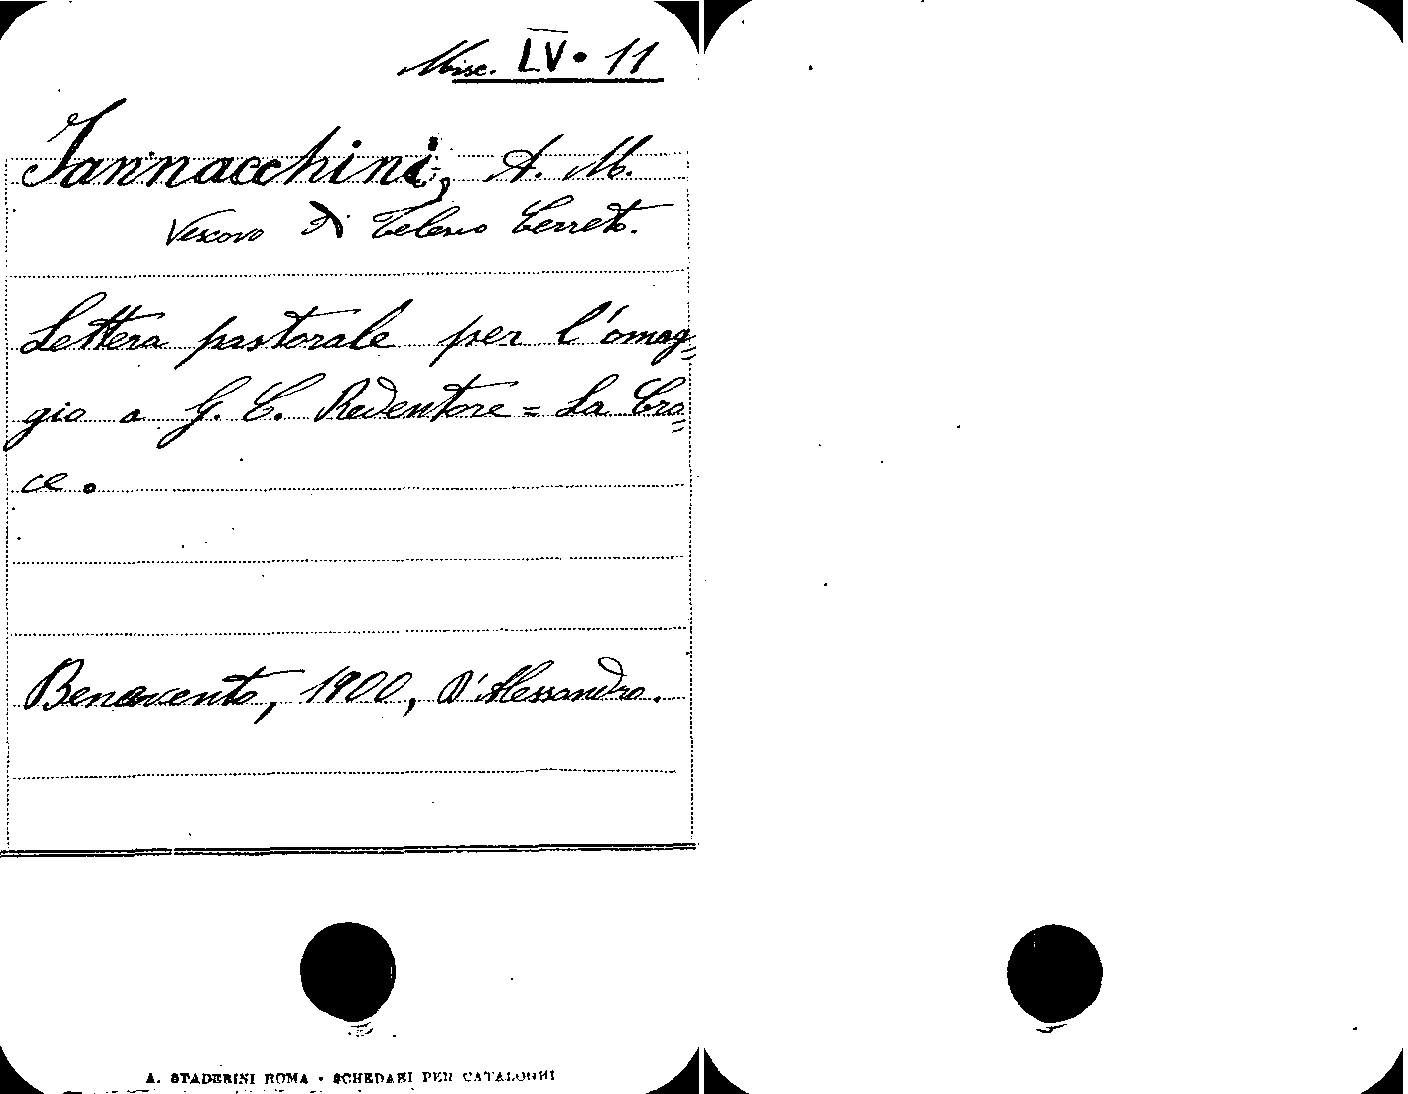 Misc. LV. 11
Iannacchini, A. M.
Vescovo di Telese Cerreto.
Lettera pastorale per l'omag=
gio a G. C. Redentore = La Cro=
ce.
Benevento, 1900, D'Alessandro.
A. STADERINI ROMA • SCHEDARI PER CATALOGHI